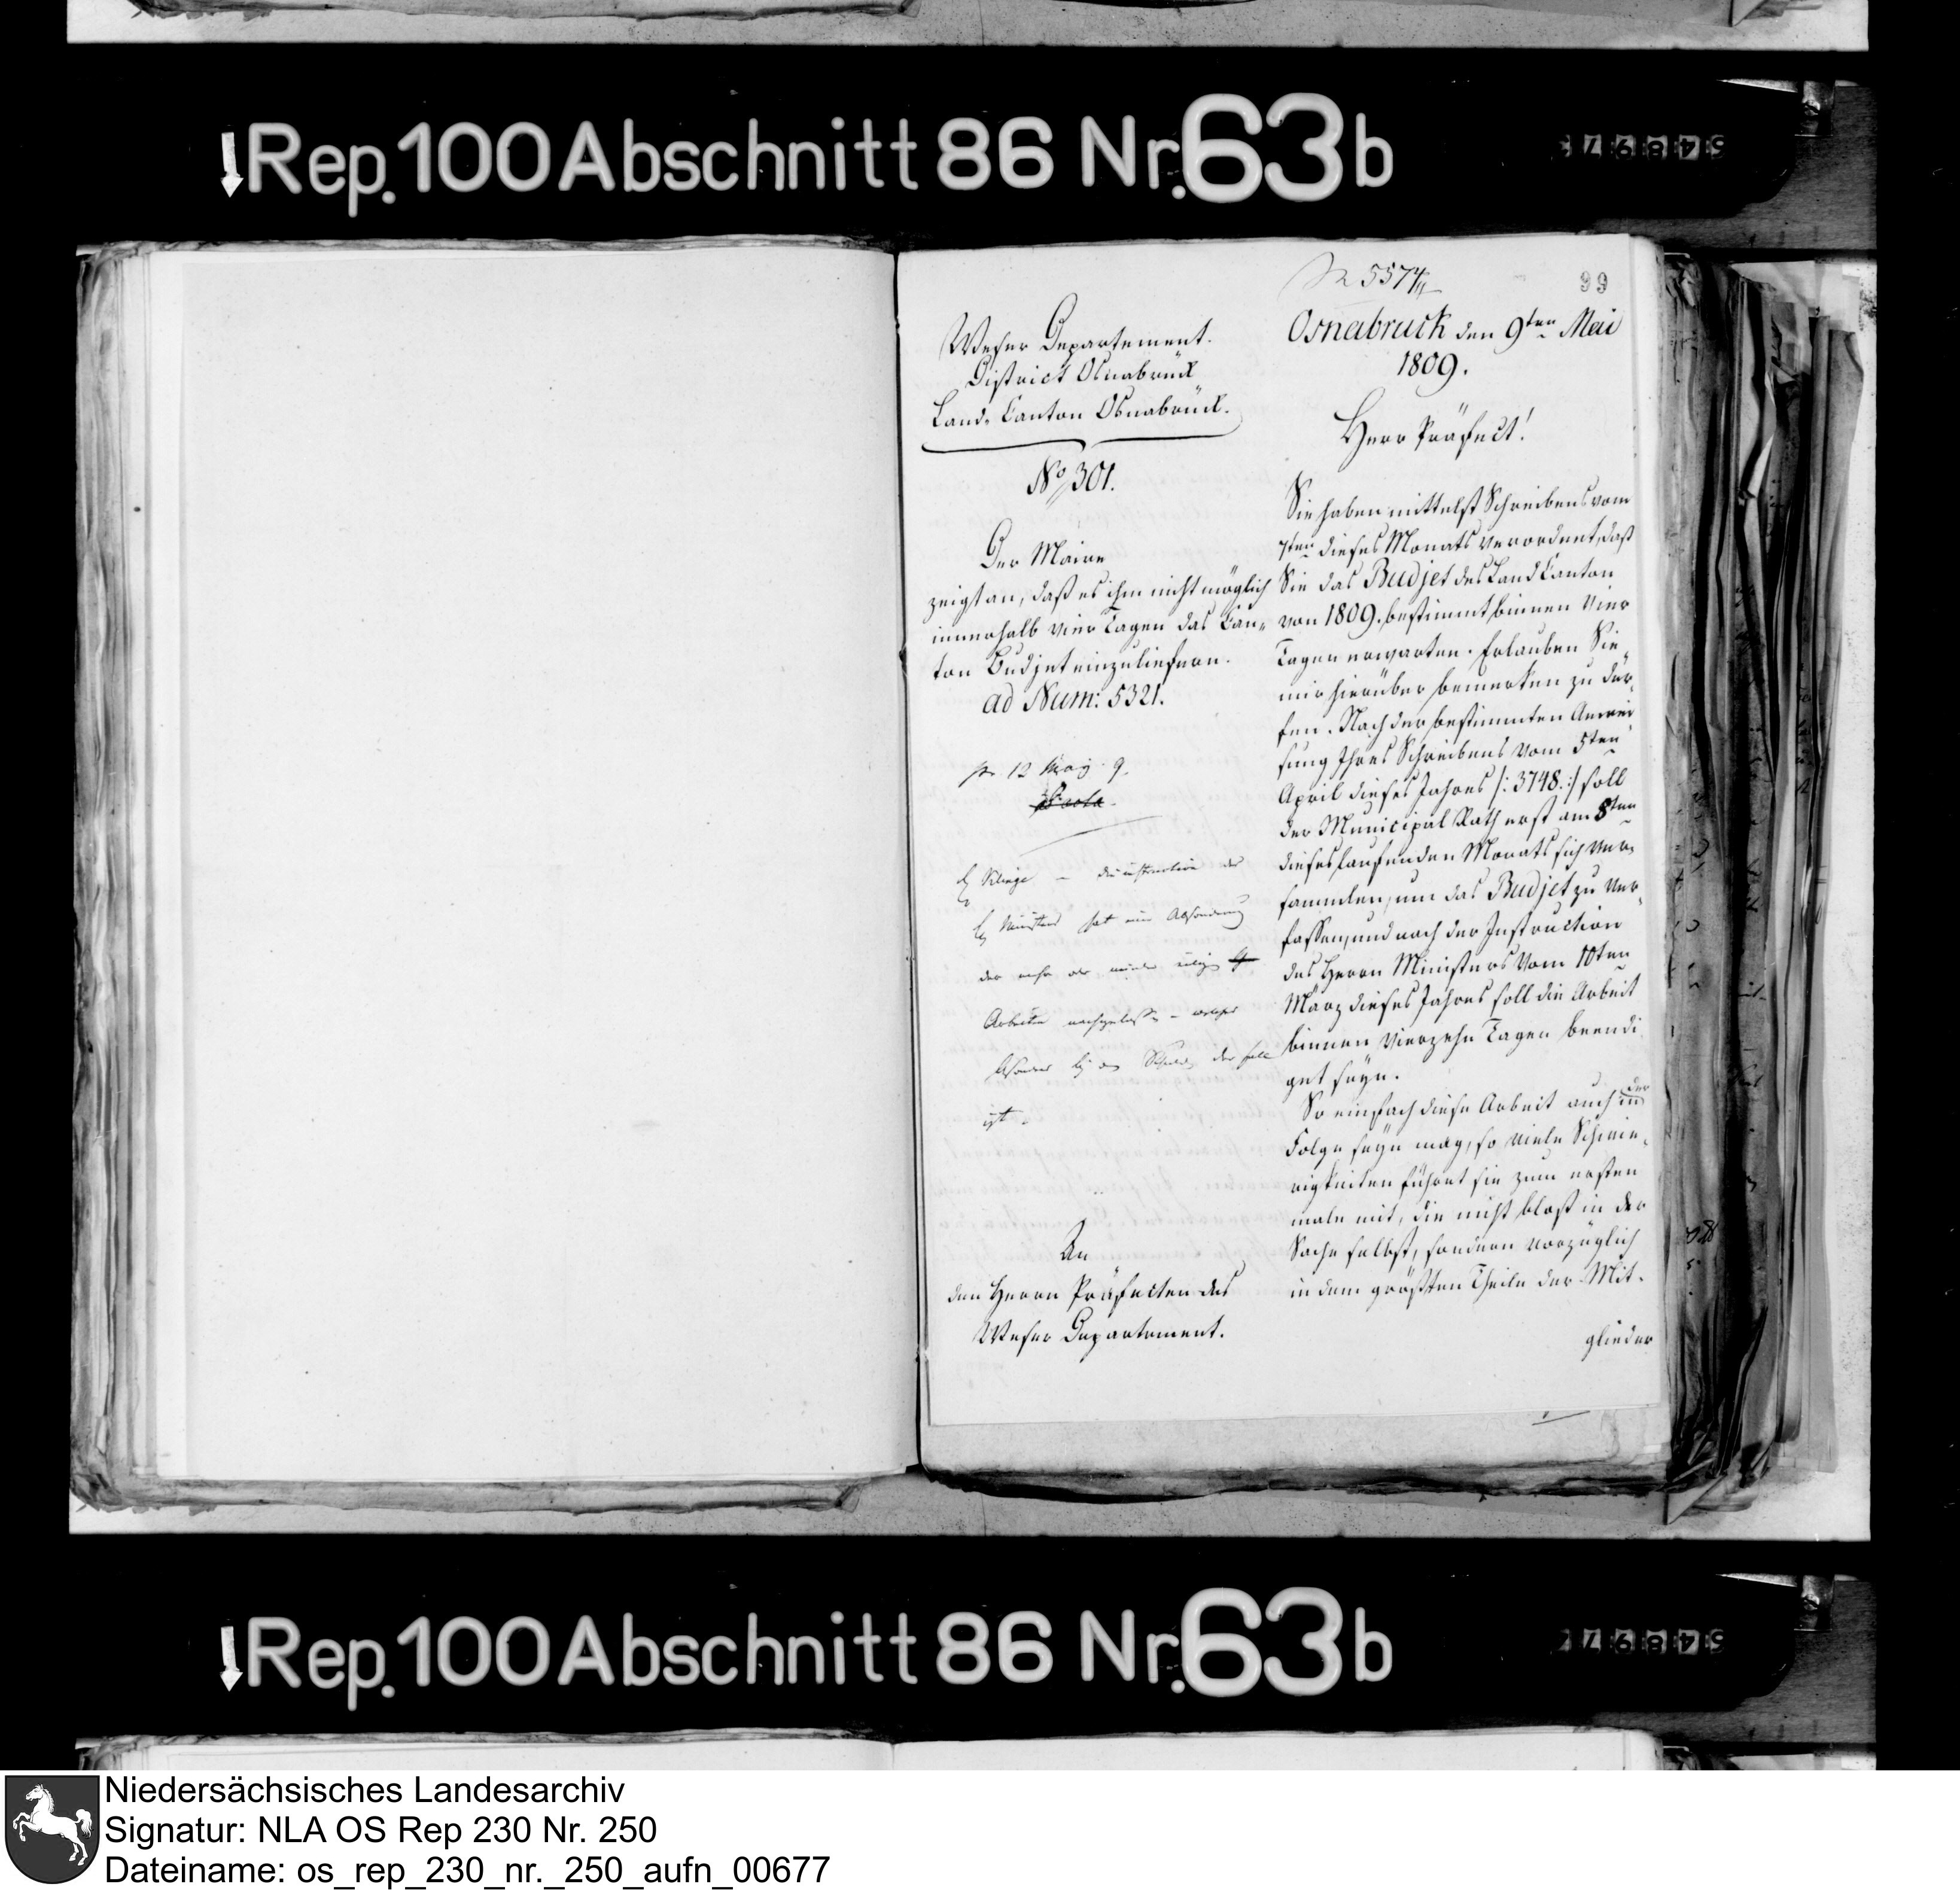 Rep. 100 Abschnitt 86 Nr. 63 b
5574
99
Weser Departement.
District Osnabrück
Land-Canton Osnabrück.
No 301.
Der Maire
zeigt an, daß es ihm nicht möglich
innerhalb vier Tagen das Can-
ton Budjet einzuliefern.
ad Num: 5321.
pr. 12 May 9.
die instruction des
Ministers hat eine Absonderung
der mehr oder minder
Arbeiten nachgelassen - welches
der Fall
ist.
An
den Herrn Präfecten des
Weser Departement.
Osnabruck den 9ten Mai
1809.
Herr Präfect!
Sie haben mittelst Schreibens vom
7ten dieses Monats verordnet, daß
Sie das Budjet des Land Canton
von 1809. bestimmt binnen vier
Tagen erwarten. Erlauben Sie
mir hierüber bemerken zu dür-
fen. Nach der bestimmten Anwei-
sung Ihres Schreibens vom 5ten
April dieses Jahres /: 3748. :/ soll
der Municipal Rath erst am 8ten
dieses laufenden Monats sich ver-
sammlen, um das Budjet zu ver-
fassen, und nach der Instruction
des Herrn Ministers vom 10ten
März dieses Jahres soll die Arbeit
binnen vierzehn Tagen beendi-
get seyn.
So einfach diese Arbeit auch in der
Folge seyn mag, so viele Schwie-
rigkeiten führet sie zum ersten
male mit, die nicht blost in der
Sache selbst, sondern vorzüglich
in dem größten Theile der Mit-
glieder
Rep. 100 Abschnitt 86 Nr. 63 b
Niedersächsisches Landesarchiv
Signatur: NLA OS Rep 230 Nr. 250
Dateiname: os_rep_230_nr._250_aufn_00677